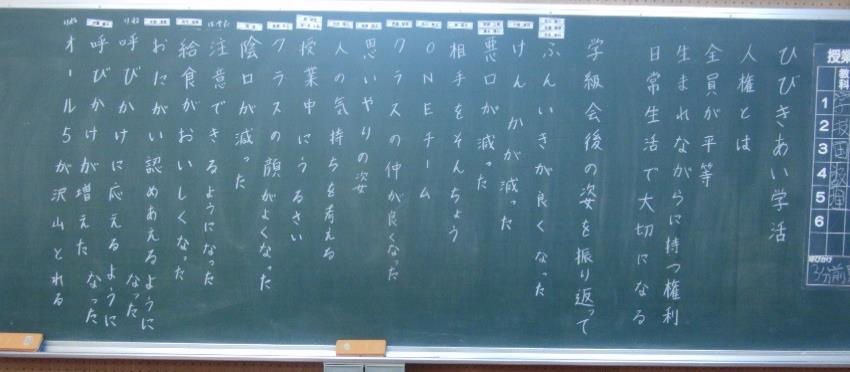 ひびきあい学活
人権とは
全員が平等
生まれながらに持つ権利
日常生活で大切になる
学級会後の姿を振り返って
ふんいきが良くなった
けんかが減った
悪口が減った
相手をそんちょう
ONEチーム
クラスの仲が良くなった
思いやりの姿
人の気持ちを考える
授業中にうるさい
クラスの顔がよくなった
陰口が減った
注意できるようになった
給食がおいしくなった
おたがい認めあえるように
呼びかけに応えるように
なった
呼びかけが増えた
なった
オール5が沢山とれる
授業
教科
1
2
3
4
5
6
呼びかけ
3分前